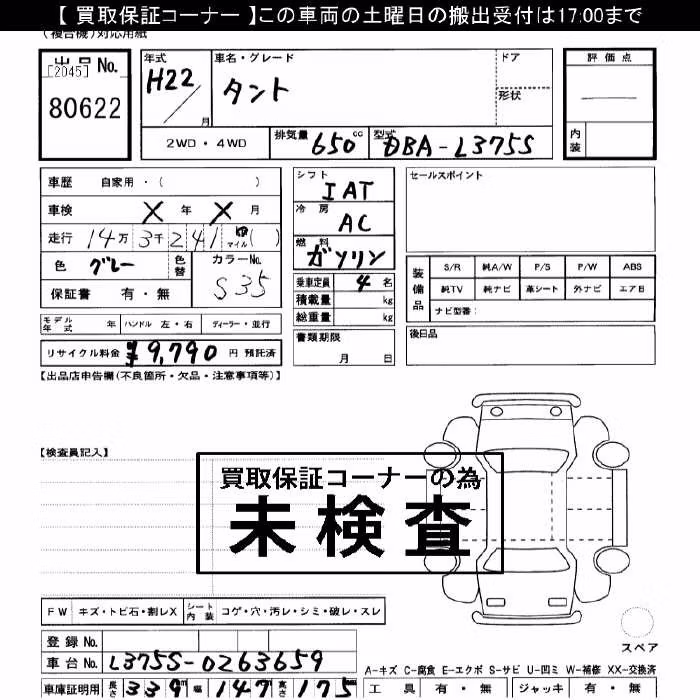 【 買取保証コーナー 】この車両の土曜日の搬出受付は17:00まで
(複合機)対応用紙
出品 No. [2045] 80622
年式 H22 / 月
車名・グレード タント
ドア
形状
評価点
内装
2WD・4WD
排気量 650 cc
型式 DBA-L375S
車歴 自家用・( )
車検 X 年 X 月
走行 14万 3千 2 4 1 マイル( )
色 グレー 色替 カラーNo. S35
保証書 有・無
モデル年式 年 ハンドル 左・右 ディーラー・並行
リサイクル料金 ¥9,790 円 預託済
シフト IAT
冷房 AC
燃料 ガソリン
乗車定員 4 名
積載量 kg
総重量 kg
書類期限 月 日
セールスポイント
装備品 S/R 純A/W P/S P/W ABS
純TV 純ナビ 革シート 外ナビ エアB
ナビ型番:
後日品
【出品店申告欄(不良箇所・欠品・注意事項等)】
【検査員記入】
買取保証コーナーの為
未検査
FW キズ・トビ石・割レX シート内装 コゲ・穴・汚レ・シミ・破レ・スレ
登録 No.
車台 No. L375S-0263659
車庫証明用 長さ 339 幅 147 高さ 175
スペア
A-キズ C-腐食 E-エクボ S-サビ U-凹ミ W-補修 XX-交換済
工具 有・無 ジャッキ 有・無